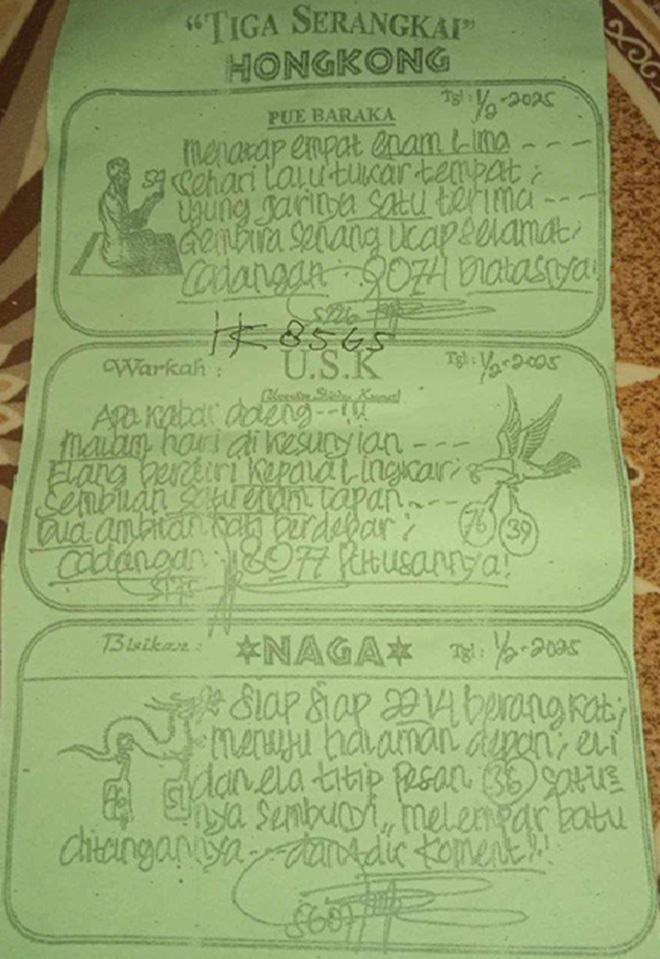 "TIGA SERANGKAI"
HONGKONG
PUE BARAKA
Tgl: 1/2-2025
Menatap empat enam Lima ---
Sehari Lalu tukar tempat;
ujung jarinya satu terima ---
Gembira senang ucap selamat;
Cadangan: 8074 Diatasnya!
5226
HK 8565
Warkah:
U.S.K
Tgl: 1/2-2025
Apa Kabar daeng --!!!
Malam hari di kesunyian ----
Elang berdiri Kepala Lingkar;
Sembilan satu enam
Dua hati berdebar;
76
39
Cadangan: 8077 Putusannya!
5175
Bisikan:
NAGA
Tgl: 1/2-2025
Siap Siap 2214 berangkat;
menuju halaman depan; eli
dan ela titip Pesan 36 satu
nya sembunyi,, melempar batu
ditangannya --- dan Adic Koment!!
5607